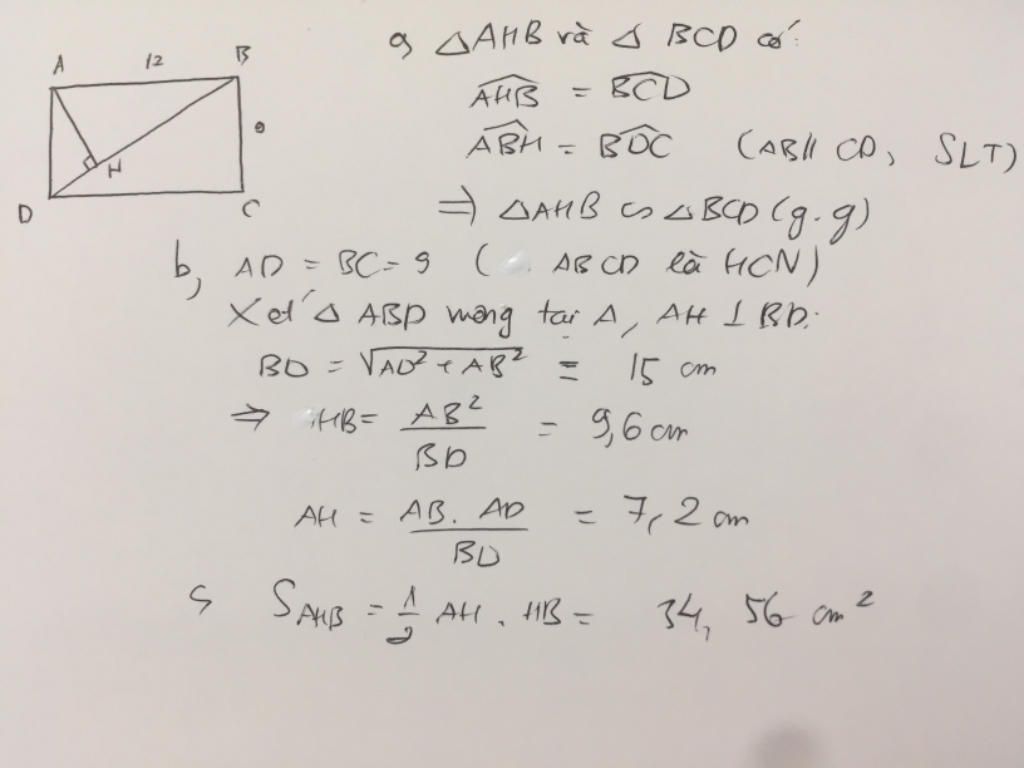 A 12 B
9
H
D C
a, △AHB và △ BCD có:
\widehat{AHB} = \widehat{BCD}
\widehat{ABH} = \widehat{BDC} (AB // CD, SLT)
⇒ △AHB ∽ △BCD (g.g)
b, AD = BC = 9 ( ABCD là HCN)
Xét △ ABD vuông tại A, AH ⊥ BD:
BD = √(AD² + AB²) = 15 cm
⇒ HB = AB²/BD = 9,6 cm
AH = AB. AD/BD = 7,2 cm
c, S_{AHB} = 1/2 AH . HB = 34,56 cm²